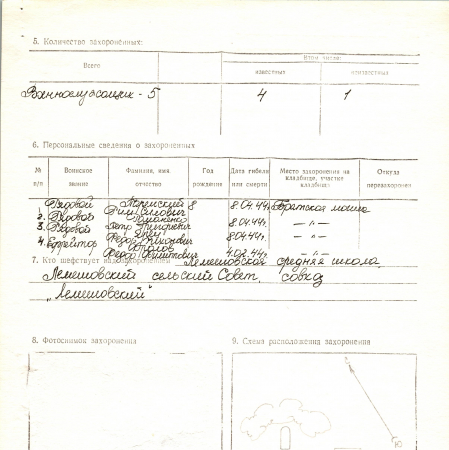 5. Количество захороненных:
Всего
В том числе:
известных
неизвестных
Военнослужащих - 5
4
1
6. Персональные сведения о захороненных
№ п/п
Воинское звание
Фамилия, имя отчество
Год рождения
Дата гибели или смерти
Место захоронения на кладбище, участке кладбища
Откуда перезахоронен
Рядовой
8.04.44г.
Братская могила
2. Рядовой
8.04.44г.
— „ —
3. Рядовой
Петр Григорьевич
8.04.44г.
— „ —
4. Ефрейтор
4.02.44г.
— „ —
7. Кто шефствует над захоронением
Лемешовская средняя школа
Лемешовский сельский Совет, совхоз
„Лемешовский"
8. Фотоснимок захоронения
9. Схема расположения захоронения
Ю